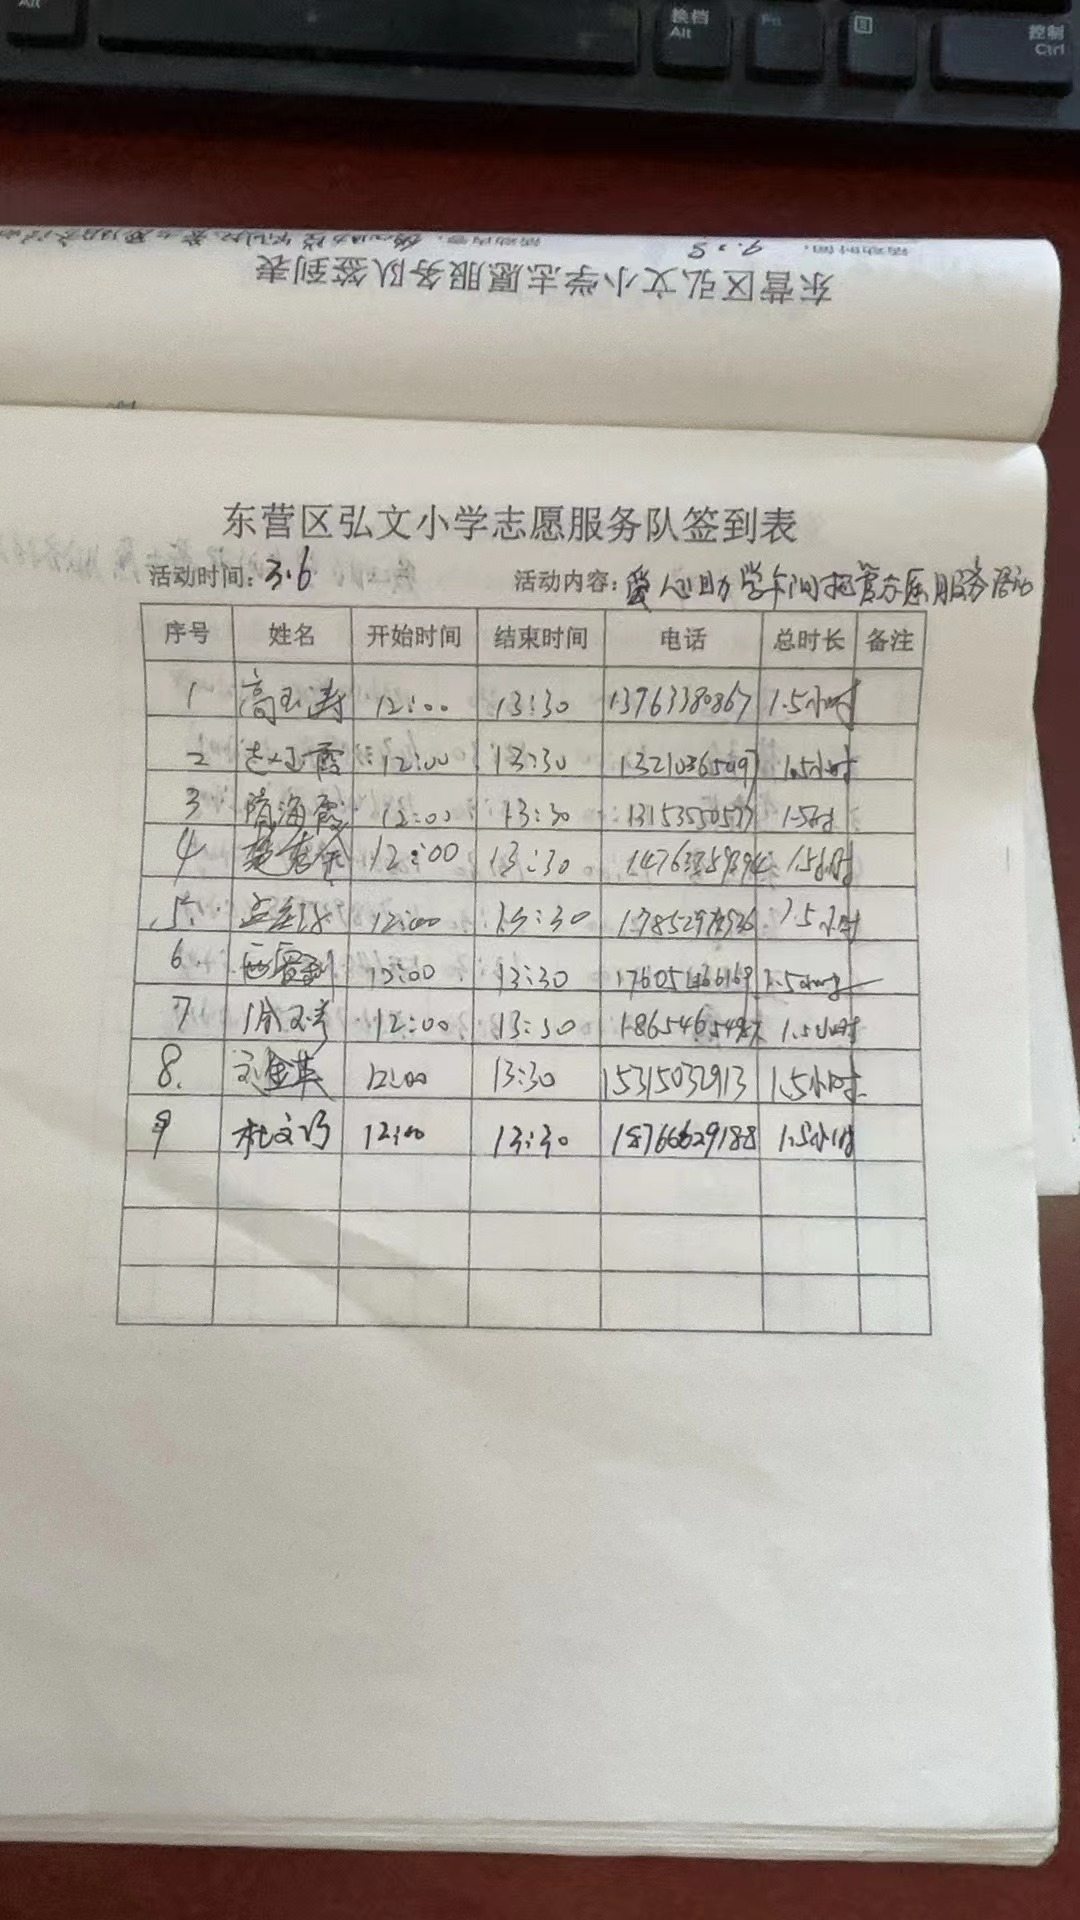 换档
Alt
Fn
控制
Ctrl
Alt
活动时间: 9.8 活动内容:
东营区弘文小学志愿服务队签到表
东营区弘文小学志愿服务队签到表
活动时间: 3.6 活动内容: 爱心助学午间托管志愿服务活动
序号 姓名 开始时间 结束时间 电话 总时长 备注
1 高玉涛 12:00 13:30 13763380867 1.5小时
2 赵玉霞 12:00 13:30 1.5小时
3 隋海霞 12:00 13:30 13153550577 1.5小时
4 12:00 13:30 1.5小时
5. 12:00 13:30 1.5小时
6. 12:00 13:30 1.5小时
7 12:00 13:30 1.5小时
8. 刘金英 12:00 13:30 15315032913 1.5小时
9 杜文巧 12:00 13:30 18766629188 1.5小时